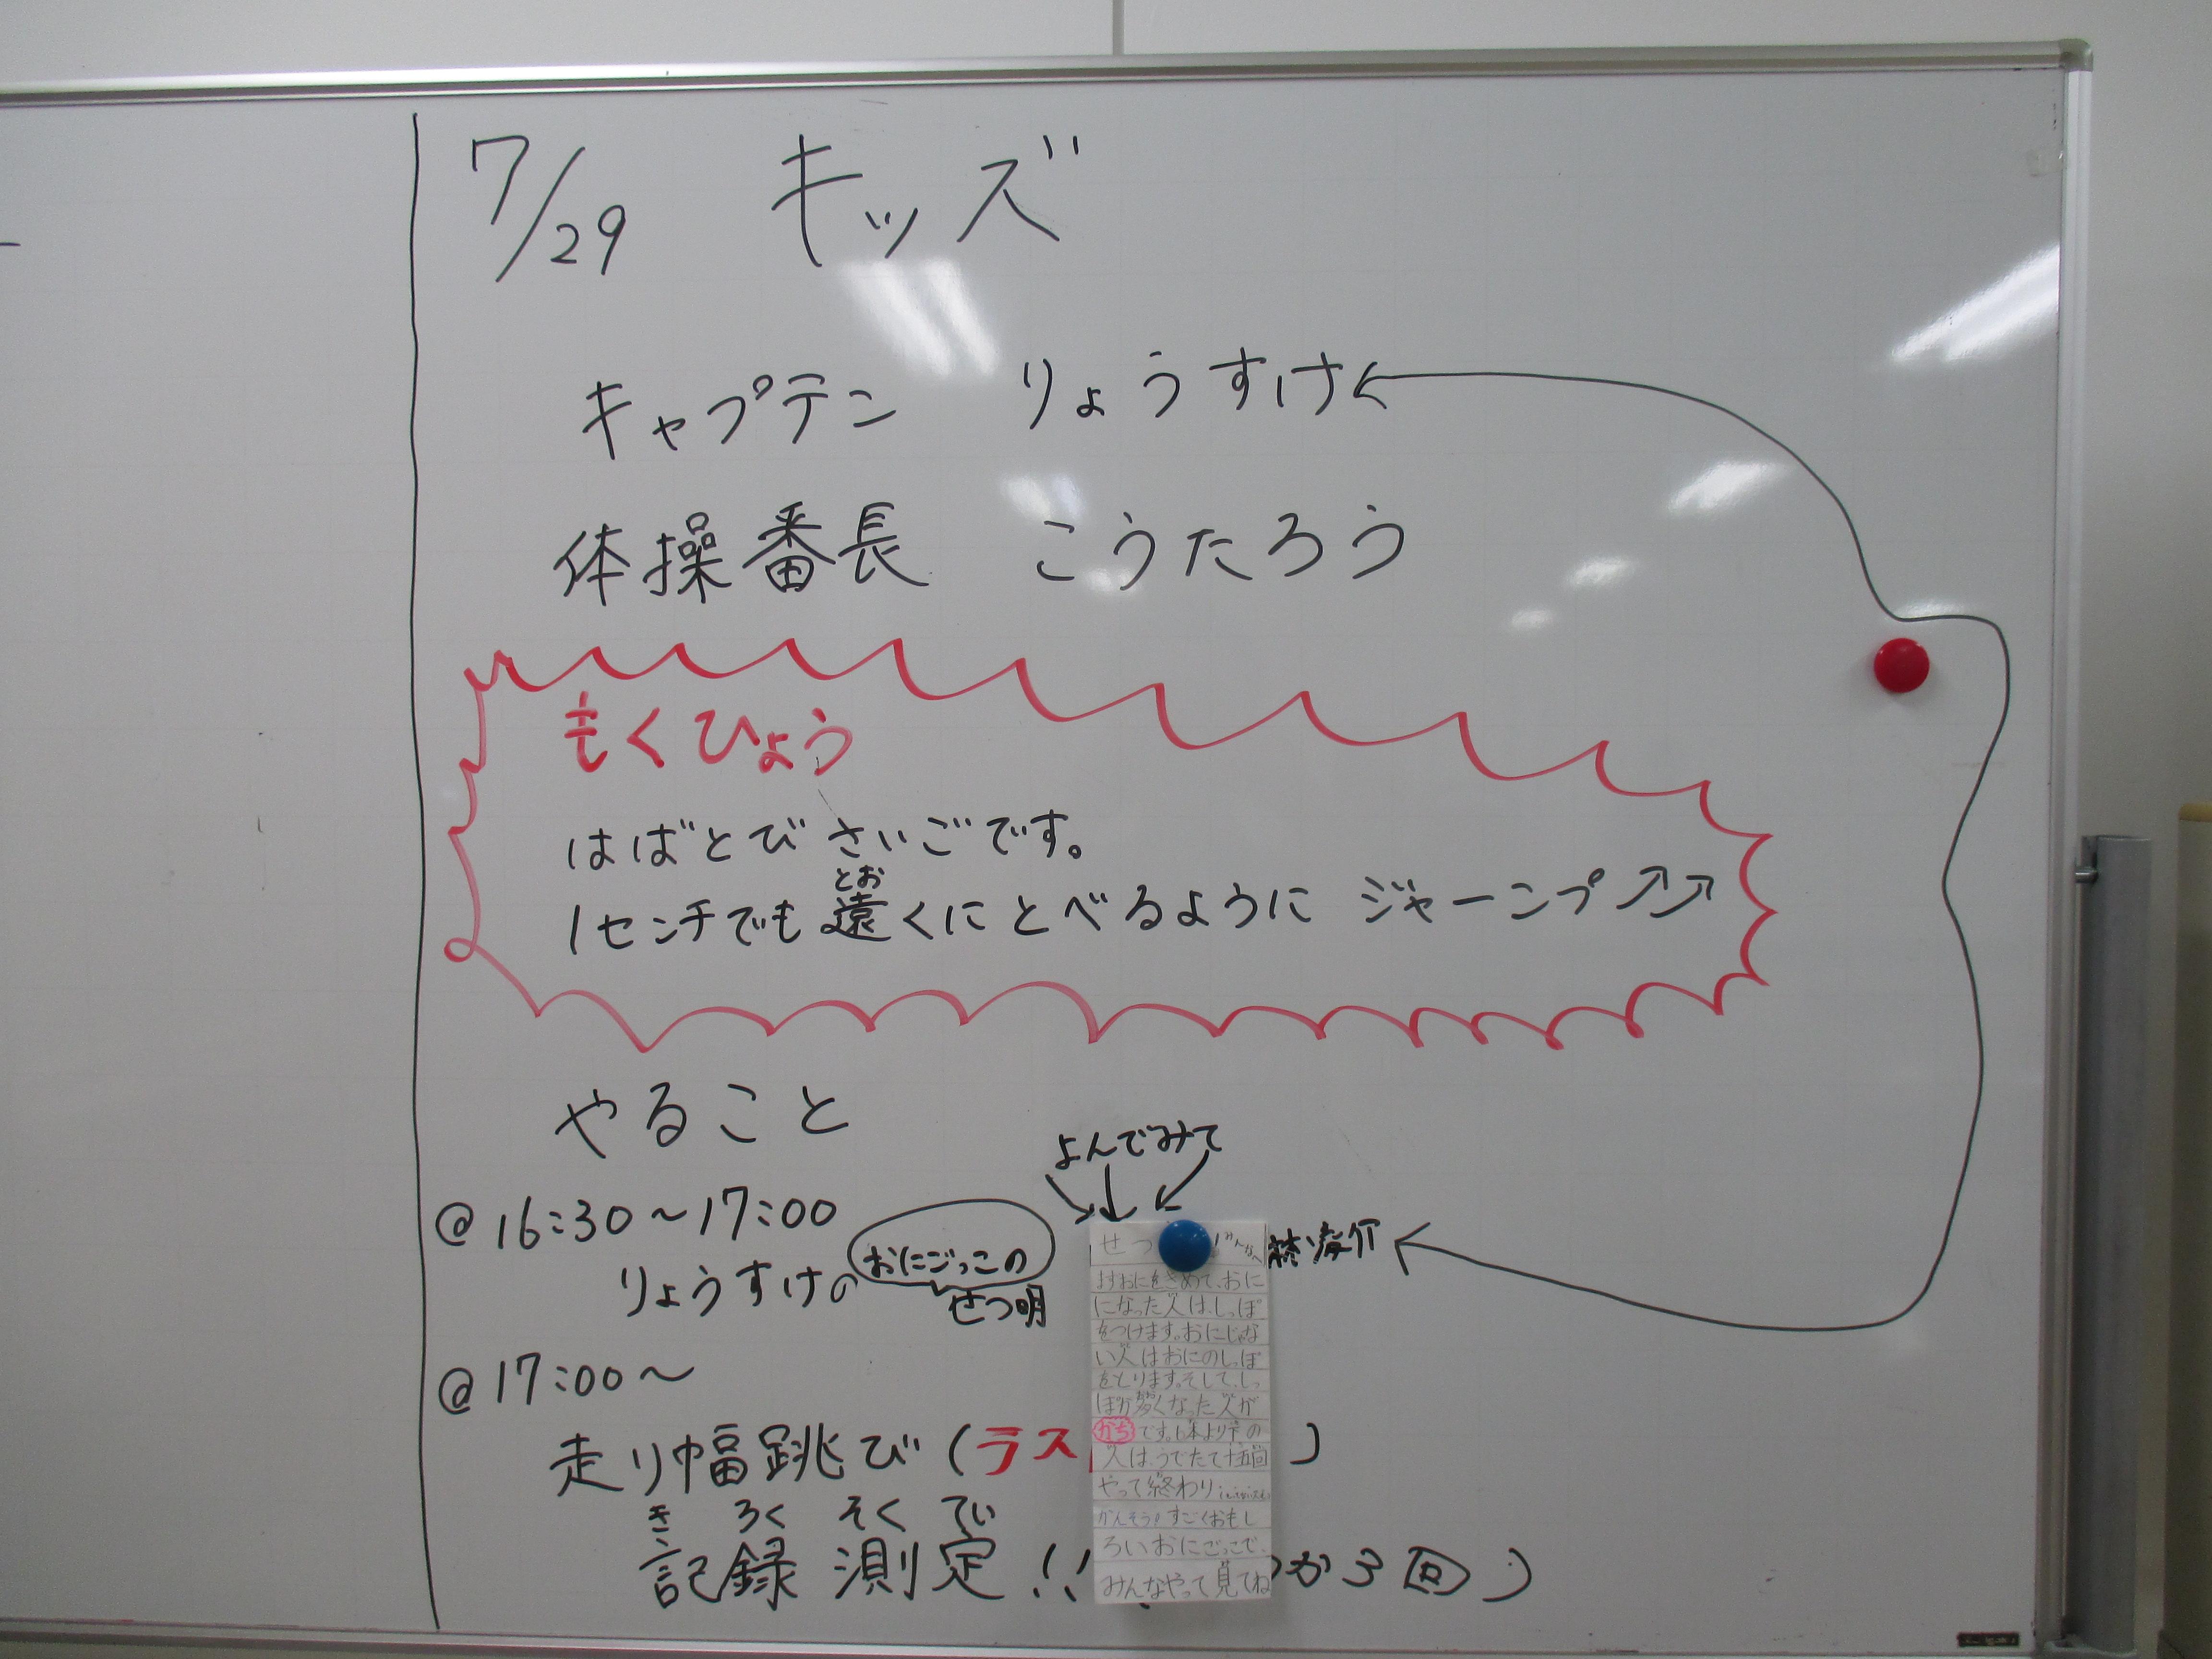 7/29 キッズ
キャプテン りょうすけ
体操番長 こうたろう
もくひょう
はばとび さいごです。
とお
1センチでも遠くにとべるように ジャーンプ↗↗
やること
よんでみて
@ 16:30～17:00
りょうすけの
おにごっこの
せつ明
@ 17:00～
走り幅跳び(ラス )
き ろく そく てい
記録 測定!! か3回)
せつ
みんなへ
ますおにをきめて、おに
になった人は、しっぽ
をつけます。おにじゃな
い人はおにのしっぽ
をとります。そして、しっ
ぽが多くなった人が
かちです。1本より下の
人は、うでたて十五回
やって終わり
かんそう? すごくおもし
ろいおにごっこで、
みんなやって見てね